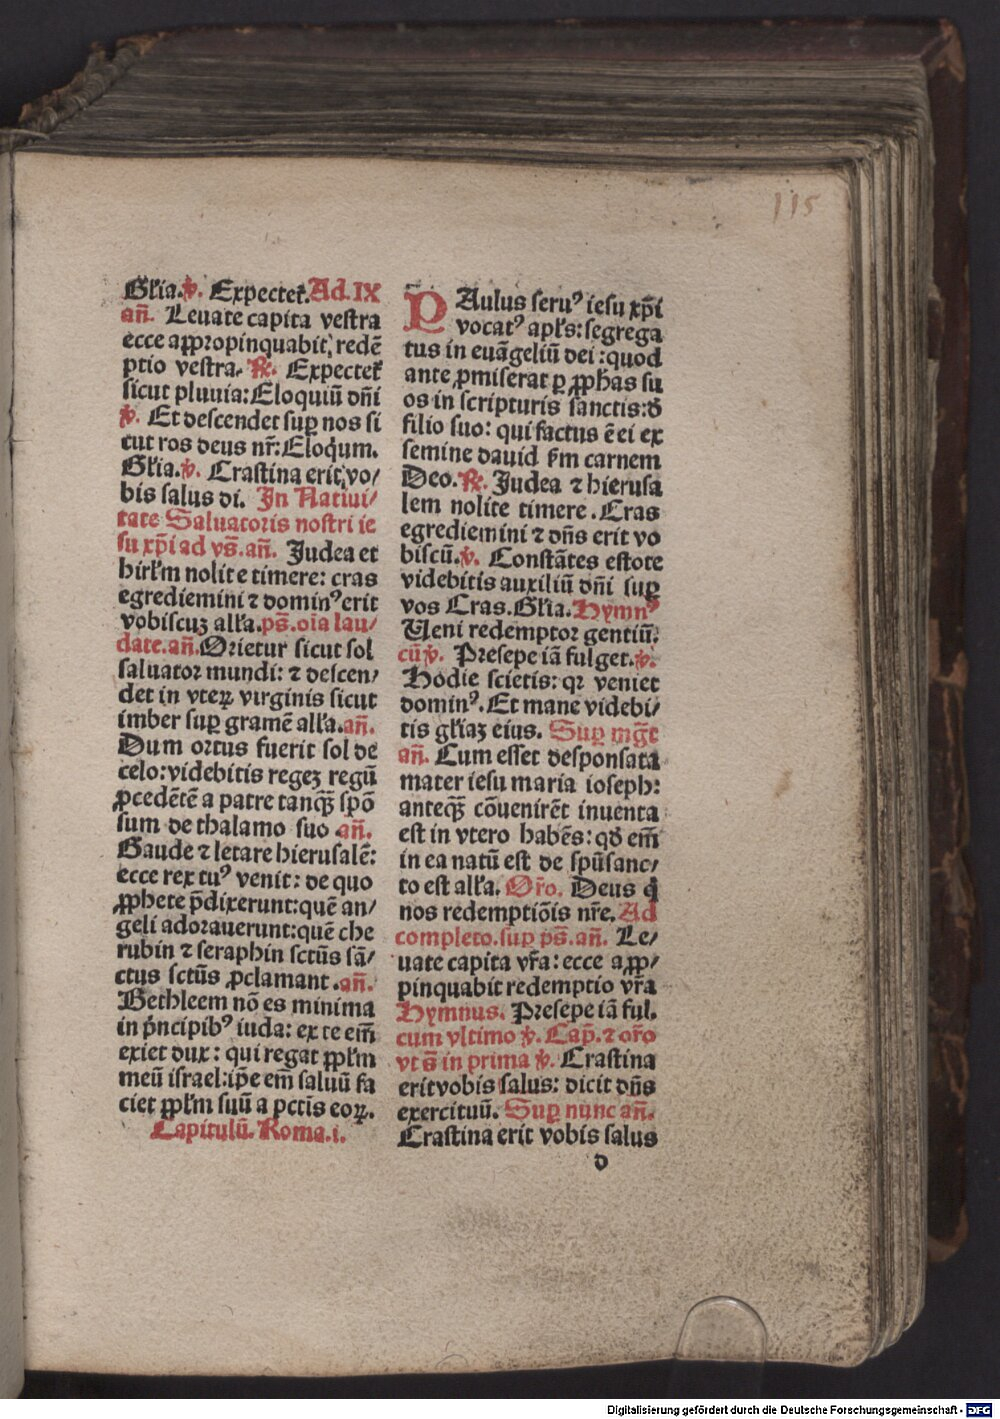 115
Gl̄ia. ℣. Expectet᷑. Ad. IX
an̄. Leuate capita vestra
ecce appropinquabit, redē
ptio vestra. ℟. Expectet᷑
sicut pluuia: Eloquiū dn̄i
℣. Et descendet suꝑ nos si
cut ros deus nr̄: Eloq̇um.
Gl̄ia. ℣. Crastina erit, vo/
bis salus di. In Natiui/
tate Saluatoris nostri ie
su xp̄i ad vs̄. an̄. Judea et
hirl̄m nolite timere: cras
egrediemini ⁊ dominꝰ erit
vobiscuꝫ all̄a. ps̄. oīa lau/
date. an̄. Orietur sicut sol
saluator mundi: ⁊ descen/
det in vteꝝ virginis sicut
imber suꝑ gramē all̄a. an̄.
Dum ortus fuerit sol de
celo: videbitis regeꝫ regū
ꝓcedētē a patre tanqꝫ̄ spō
sum de thalamo suo .an̄.
Gaude ⁊ letare hierusalē:
ecce rex tuꝰ venit: de quo
ꝓphete p̄dixerunt: quē an/
geli adorauerunt: quē che
rubin ⁊ seraphin sctūs sā/
ctus sctūs ꝓclamant .an̄.
Bethleem nō es minima
in pͥncipibꝰ iuda: ex te em̄
exiet dux: qui regat ppl̄m
meū israel: ip̄e em̄ saluū fa
ciet ppl̄m suū a pctīs eoꝝ.
Capitulū. Roma. i.
PAulus seruꝰ iesu xp̄i
vocatꝰ apl̄s: segrega
tus in euāgeliū dei: quod
ante ꝓmiserat ꝑ ꝓphas su
os in scripturis sanctis: đ
filio suo: qui factus ē ei ex
semine dauid s̄m carnem
Deo. ℟. Judea ⁊ hierusa
lem nolite timere. Cras
egrediemini ⁊ dn̄s erit vo
biscū. ℣. Constātes estote
videbitis auxiliū dn̄i suꝑ
vos Cras. Gl̄ia. Hymnꝰ
Ueni redemptor gentiū.
cū ℣. Presepe iā fulget. ℣.
Hodie scietis: qꝛ veniet
dominꝰ. Et mane videbi/
tis gl̄iaꝫ eius. Suꝑ mḡt
an̄. Cum esset desponsata
mater iesu maria ioseph:
anteqꝫ̄ cōuenirēt inuenta
est in vtero habēs: qđ em̄
in ea natū est de spūsanc/
to est all̄a. Or̄o. Deus q̇
nos redemptiōis nr̄e. Ad
completo. suꝑ ps̄. an̄. Le/
uate capita vr̄a: ecce apꝓ/
pinquabit redemptio vr̄a
Hymnus. Presepe iā ful.
cum vltimo ℣. Cap̄. ⁊ or̄o
vt s̄ in prima ℣. Crastina
erit vobis salus: dicit dn̄s
exercituū. Suꝑ nunc an̄.
Crastina erit vobis salus
d
Digitalisierung gefördert durch die Deutsche Forschungsgemeinschaft - DFG